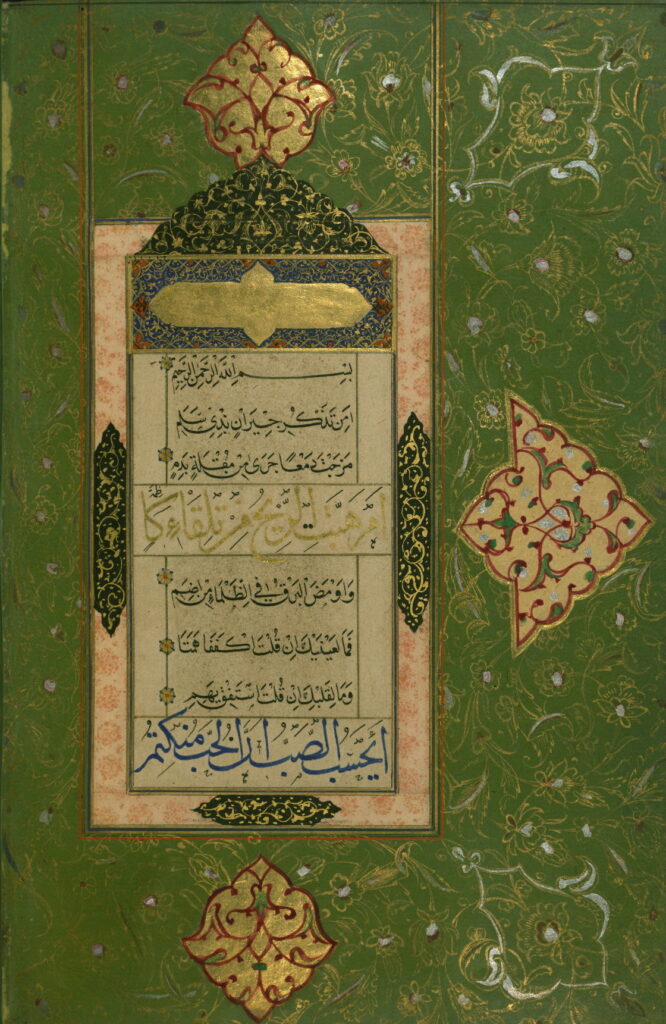 بسم الله الرحمن الرحيم
امن تذكر جيران بذى سلم
مزجت دمعا جرى من مقلة بدم
ام هبت الريح من تلقاء كاظمة
واومض البرق في الظلماء من اضم
فما لعينيك ان قلت اكففا همتا
وما لقلبك ان قلت استفق يهم
ايحسب الصب ان الحب منكتم